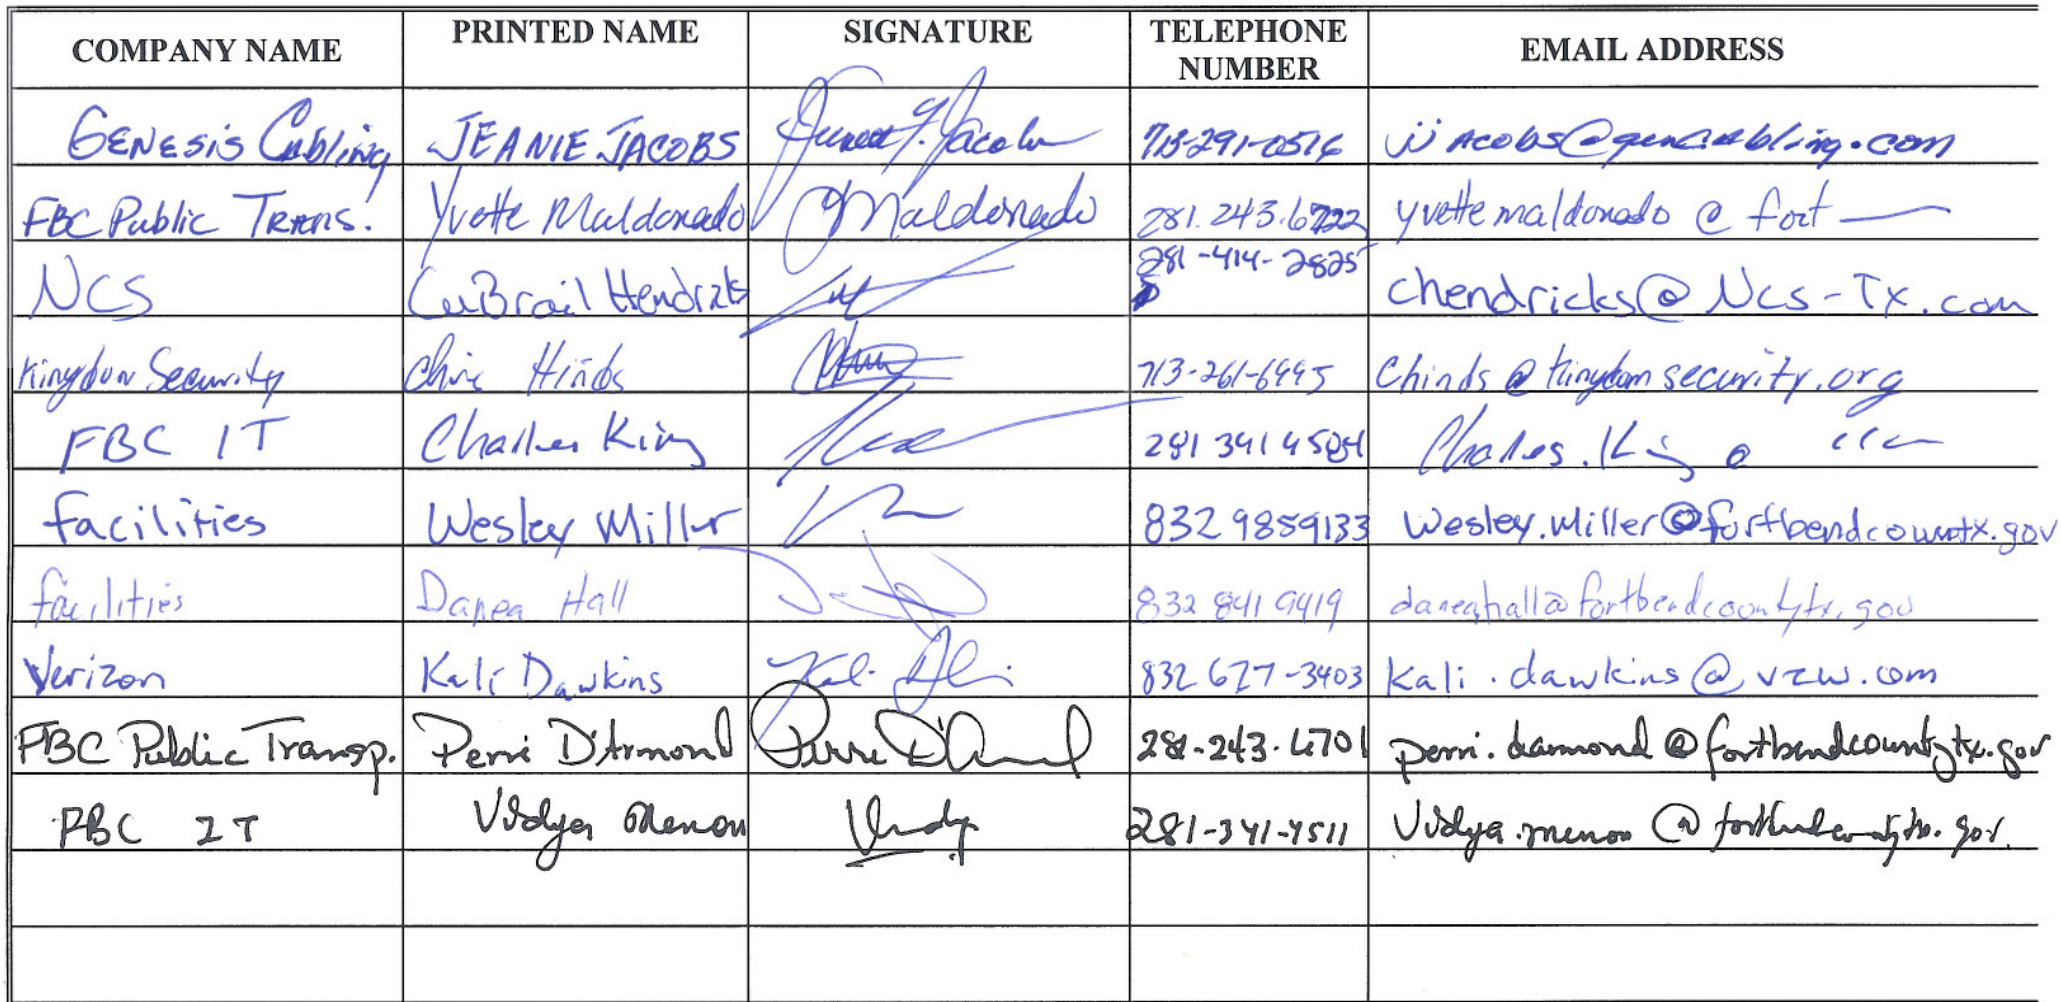 COMPANY NAME PRINTED NAME SIGNATURE TELEPHONE NUMBER EMAIL ADDRESS
GENESIS Cabling JEANIE JACOBS 713-291-0516 jjacobs@gencabling.com
FBC Public Trans. Yvette Maldonado Maldonado 281.243.6722 yvettemaldonado @ fort
NCS CeBrail Hendricks 281-414-2825 chendricks@Ncs-Tx.com
Kingdom Security Clive Hinds 713-261-6995 Chinds@kingdomsecurity.org
FBC IT Charles King 281 341 4584 Charles.King @
facilities Wesley Miller 832 9859133 Wesley.Miller@fortbendcountx.gov
facilities Danea Hall 832 841 9419 daneahall@fortbendcountytx.gov
Verizon Kali Dawkins 832 627-3403 Kali.dawkins@vzw.com
FBC Public Transp. Perri D'Armond Perri D'Armond 281-243-6701 perri.darmond@fortbendcountytx.gov
FBC IT Vidya Menon 281-341-4511 Vidya.menon@fortbendcountytx.gov